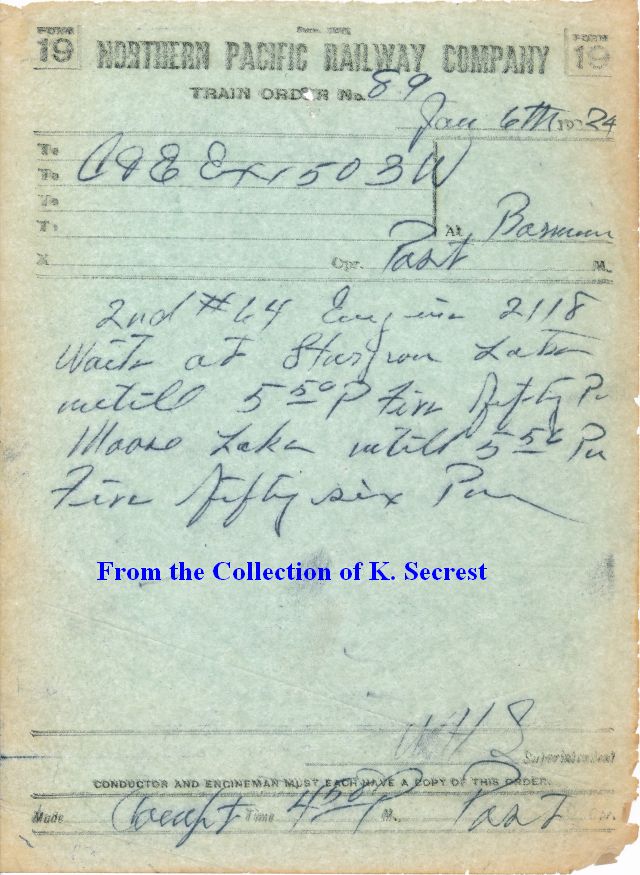 FORM 19 NORTHERN PACIFIC RAILWAY COMPANY FORM 19
TRAIN ORDER No. 89
Jan 6th 1924
To
To C&E Ex 1503 W
To
To At Barnum
X Opr. Post M.
2nd #64 Engine 2118
Waits at Sturgeon Lake
untill 5 50 P Five fifty P
Moose Lake untill 5 56 Pm
Five fifty six Pm
From the Collection of K. Secrest
W H S
Superintendent
CONDUCTOR AND ENGINEMAN MUST EACH HAVE A COPY OF THIS ORDER.
Made Compt Time 4 50 P M. Post Opr.